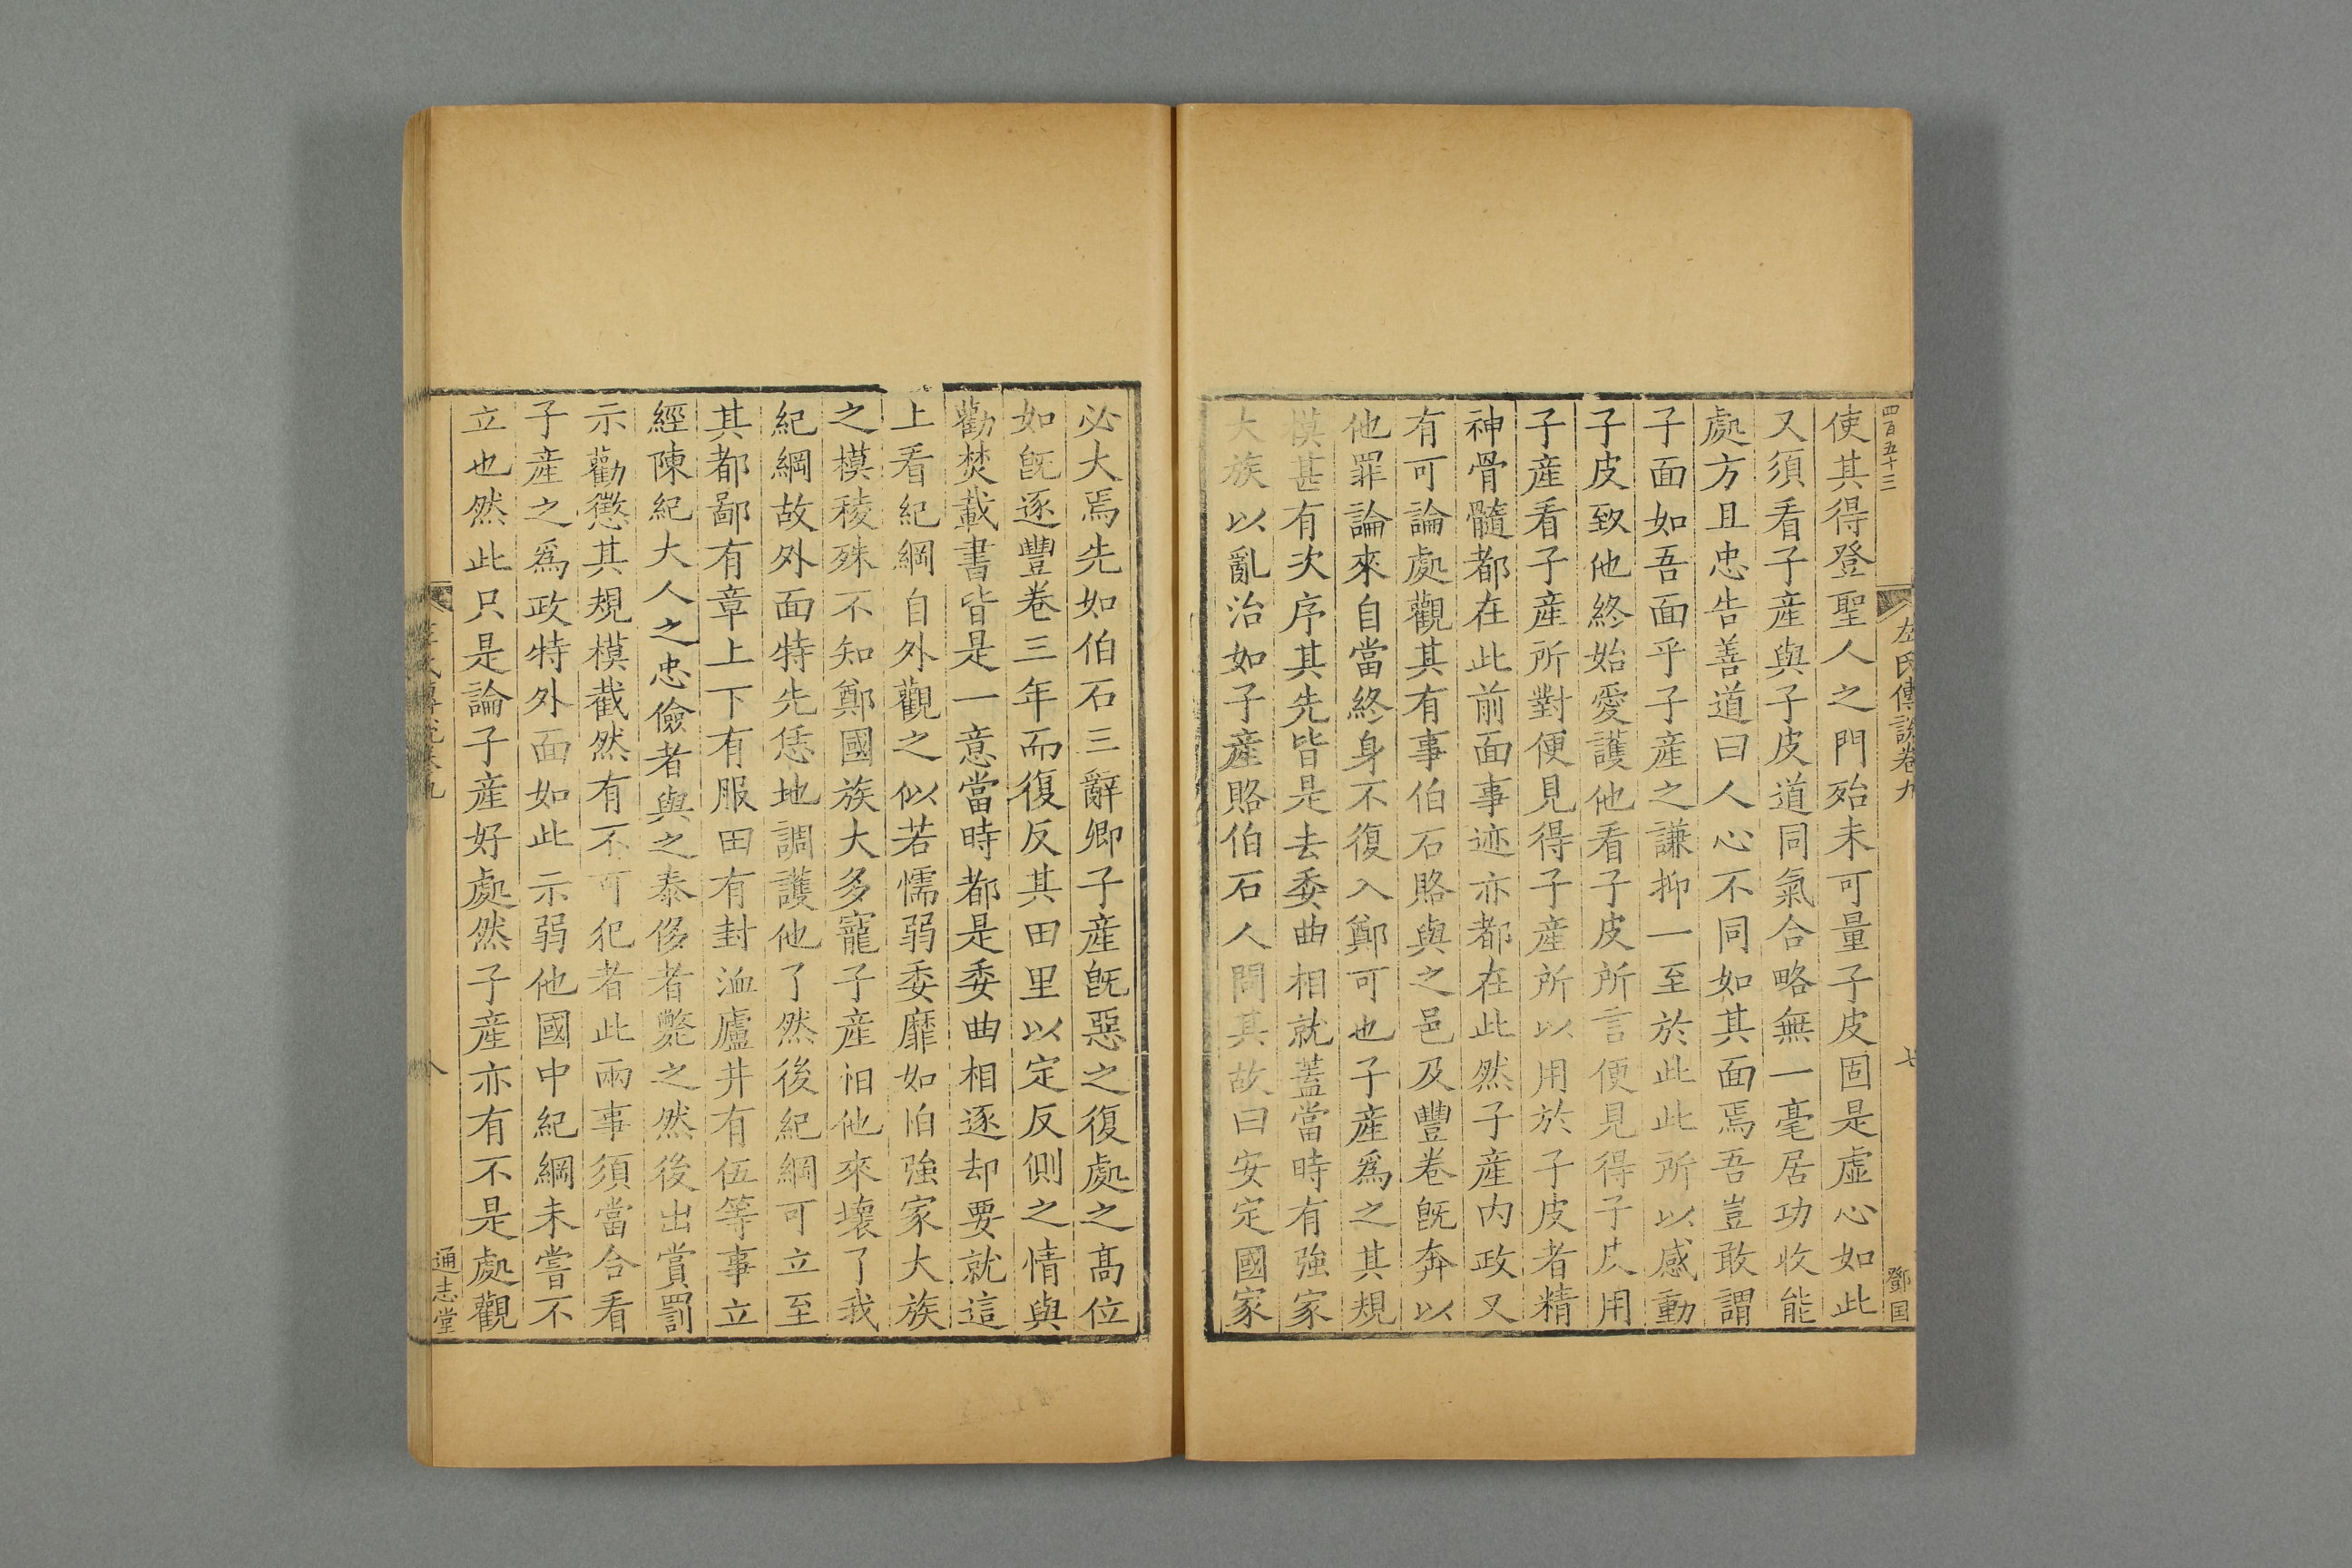 四百五十三
左氏傳説卷九
七
鄧国
使其得登聖人之門殆未可量子皮固是虚心如此
又須看子産與子皮道同氣合略無一毫居功收能
處方且忠告善道曰人心不同如其面焉吾豈敢謂
子面如吾面乎子産之謙抑一至於此此所以感動
子皮致他終始愛護他看子皮所言便見得子皮用
子産看子産所對便見得子産所以用於子皮者精
神骨髓都在此前面事迹亦都在此然子産内政又
有可論處觀其有事伯石賂與之邑及豐卷旣奔以
他罪論來自當終身不復入鄭可也子産爲之其規
模甚有次序其先皆是去委曲相就蓋當時有強家
大族以亂治如子産賂伯石人問其故曰安定國家
必大焉先如伯石三辭卿子産旣惡之復處之高位
如旣逐豐卷三年而復反其田里以定反側之情與
勸焚載書皆是一意當時都是委曲相逐却要就這
上看紀綱自外觀之似若懦弱委靡如怕強家大族
之模稜殊不知鄭國族大多寵子産怕他來壞了我
紀綱故外面特先恁地調護他了然後紀綱可立至
其都鄙有章上下有服田有封洫廬井有伍等事立
經陳紀大人之忠儉者與之泰侈者斃之然後出賞罰
示勸懲其規模截然有不可犯者此兩事須當合看
子産之爲政特外面如此示弱他國中紀綱未嘗不
立也然此只是論子産好處然子産亦有不是處觀
八
通志堂